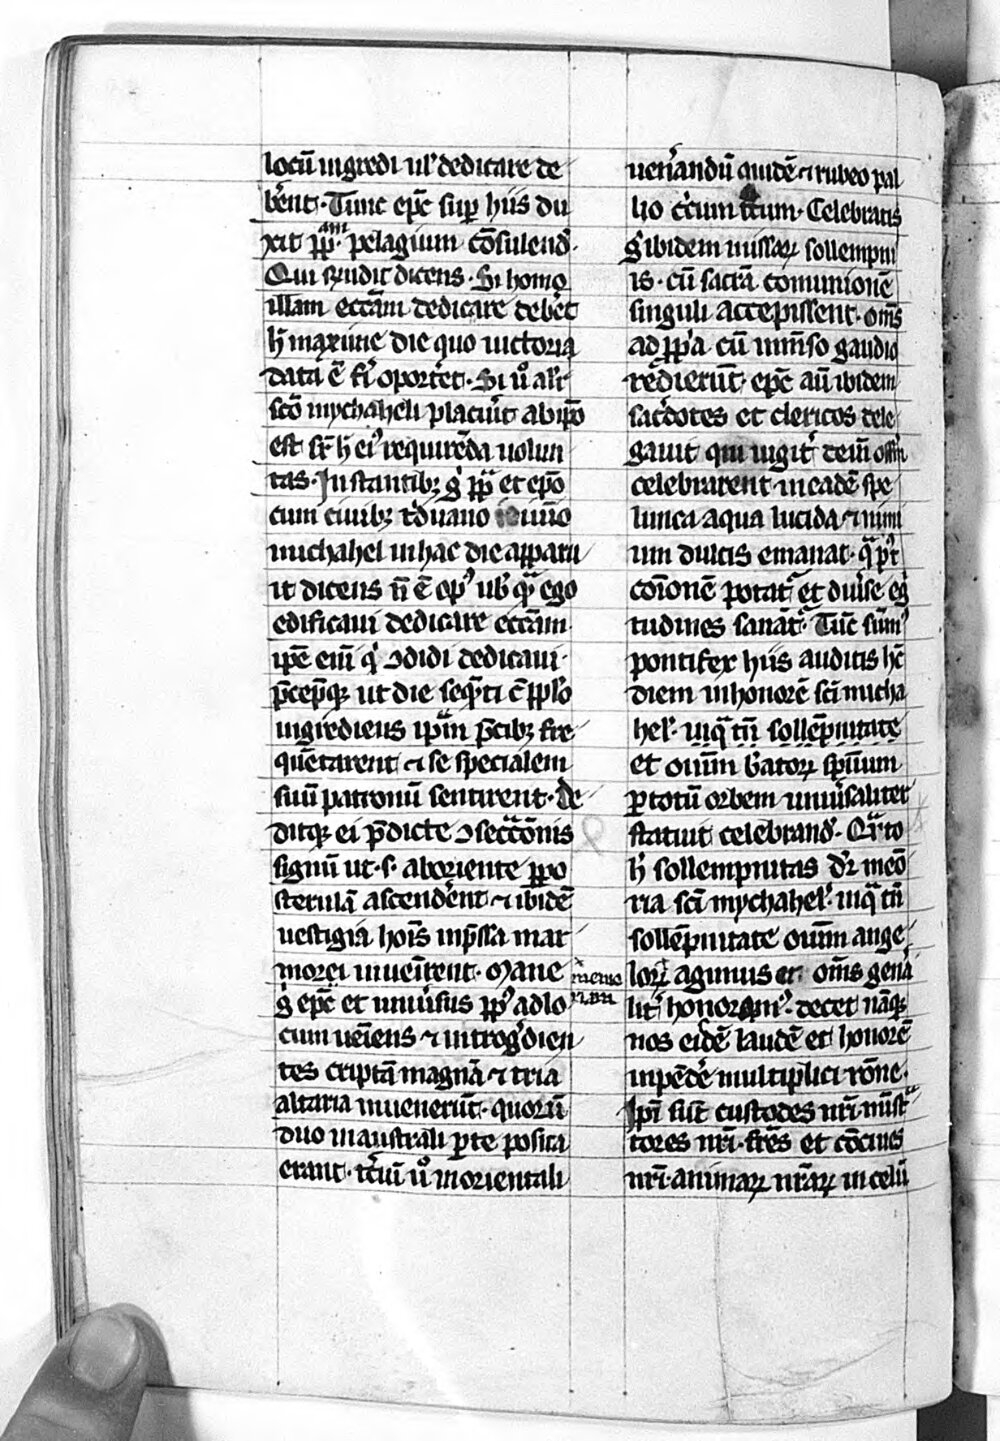 locũ ingredi ul' dedicare de
bẽnt. Tunc ep̃c sup hiis du
xit pp̃am. pelagium cõsulend̉.
Qui rñdit dicens. Si homo
illam ecc̃am dedicare debet
h̉ maxime die quo uictoria
data ẽ fi̾ oportet. Si u̾o alit̾
sc̃o mychaheli placuit ab ip̃o
est sr̃ h̉ ei⁹ requirẽda uolun
tas. Instantibꝫ g̾ pp̃a et ep̃o
cum ciuibꝫ t̾duano ieiunio
michahel in hac die apparu
it dicens ñ ẽ op⁹ ub̾ qͣ ego
edificaui dedicare ecc̃am.
ip̃e eñ q̾ ↄdidi dedicaui.
p̃cepitqꝫ ut die seqͣnti c̃ pp̃lo
ingrediens ip̃am p̃cibꝫ fre
quẽtarent ⁊ se specialem
suũ patronũ sentirent. de
ditqꝫ ei p̃dicte ↄsecͣcõnis
signũ ut .s. ab oriente p po
sterulã ascendẽnt ⁊ ibidẽ
uestigia hoĩs imp̃ssa mar
morei inueñirent. Mane
g̾ ep̃c et uniu̾sus pp̃s ad lo
cum ueĩens ⁊ introg̾dien
tes criptã magnã ⁊ tria
altaria inuenerũt. quorũ
duo in australi ꝑte posita
erant. t̾ciũ u̾o in orientali
memo
riam
uen̾andũ quidẽ ⁊ rubeo pal
lio c̾cum tc̃um. Celebratis
g̾ ibidem missaꝝ sollempni
is. cũ sacrã comunionẽ
singuli accepissent. om̃s
ad pp̾a cũ inm̃so gaudio
redierũt. ep̃c aũ ibidem
sac̾dotes et clericos dele
gauit qui iugit̾ deiñ offm
celebrarent in eadẽ spe
lunca aqua lucida ⁊ nimi
um dulcis emanat. qͣ p̾t
cõionẽ potat̾ et diu̾se eg̾
tudines sanãt̾. Tũc sũm⁹
pontifex hiis auditis hc̃
diem in honorẽ sc̃i micha
hel'. in qͣ tñ sollẽpnitate
et om̃um b̾atoꝝ sp̃uum
ꝑ totũ orbem uniu̾saliter
statuit celebrand̉. Qͣrto
h̉ sollempnitas dr̃ meõ
ria sc̃i mychahel'. in qͣ tñ
sollẽpnitate om̃um ange
loꝝ agimus et om̃s gen̾a
lit̾ honoram⁹. decet nãqꝫ
nos eidẽ laudẽ et honorẽ
inpẽdẽ multiplici rõne.
Ip̃i sũt custodes nr̃i. mist̾
tores nr̃i. fr̃es et cõciues
nr̃i. animaꝝ nr̃aꝝ in celũ